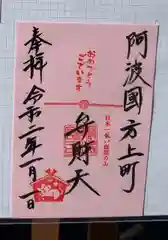 阿波國方上町
日本一低い霊山
弁財天
おめでとう
ございます
奉拝
令和二年一月一日